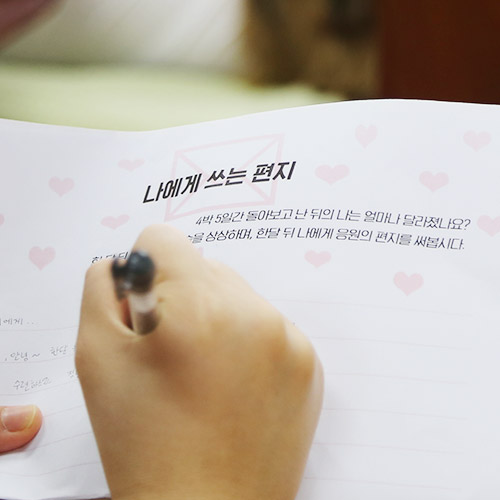 나에게 쓰는 편지
4박 5일간 돌아보고 난 뒤의 나는 얼마나 달라졌나요?
한 달 뒤 상상하며, 한달 뒤 나에게 응원의 편지를 써봅시다.
에게..
안녕~ 한달